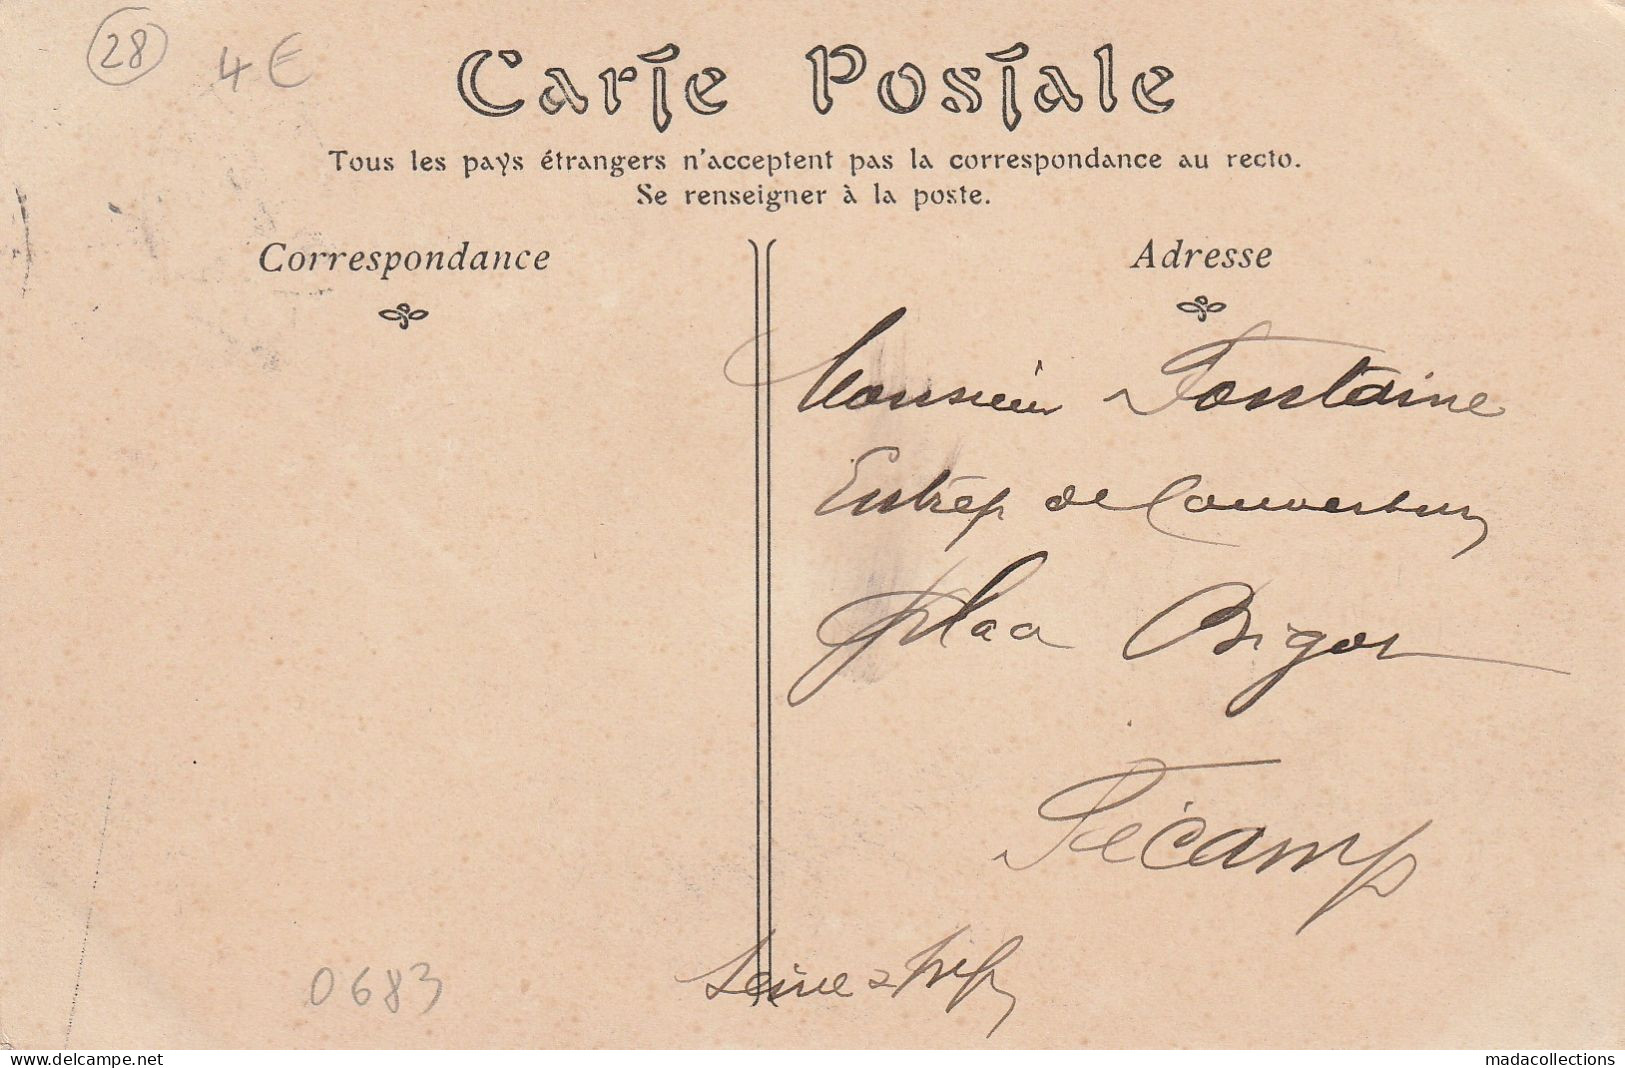 28
4 €
Carte Postale
Tous les pays étrangers n'acceptent pas la correspondance au recto.
Se renseigner à la poste.
Correspondance
Adresse
Monsieur Fontaine
Entrep de Couverture
Place Bigot
Fécamp
Seine & Inf
0683
www.delcampe.net
madacollections